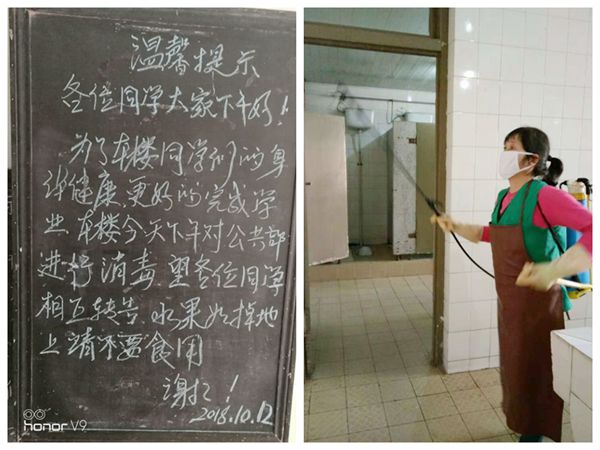 温馨提示
各位同学大家下午好！
为了本楼同学们的身
体健康,更好的完成学
业 本楼今天下午对公共部
进行消毒 望各位同学
相互转告.水果如掉地
上请不要食用
谢谢！
2018.10.12
honor V9